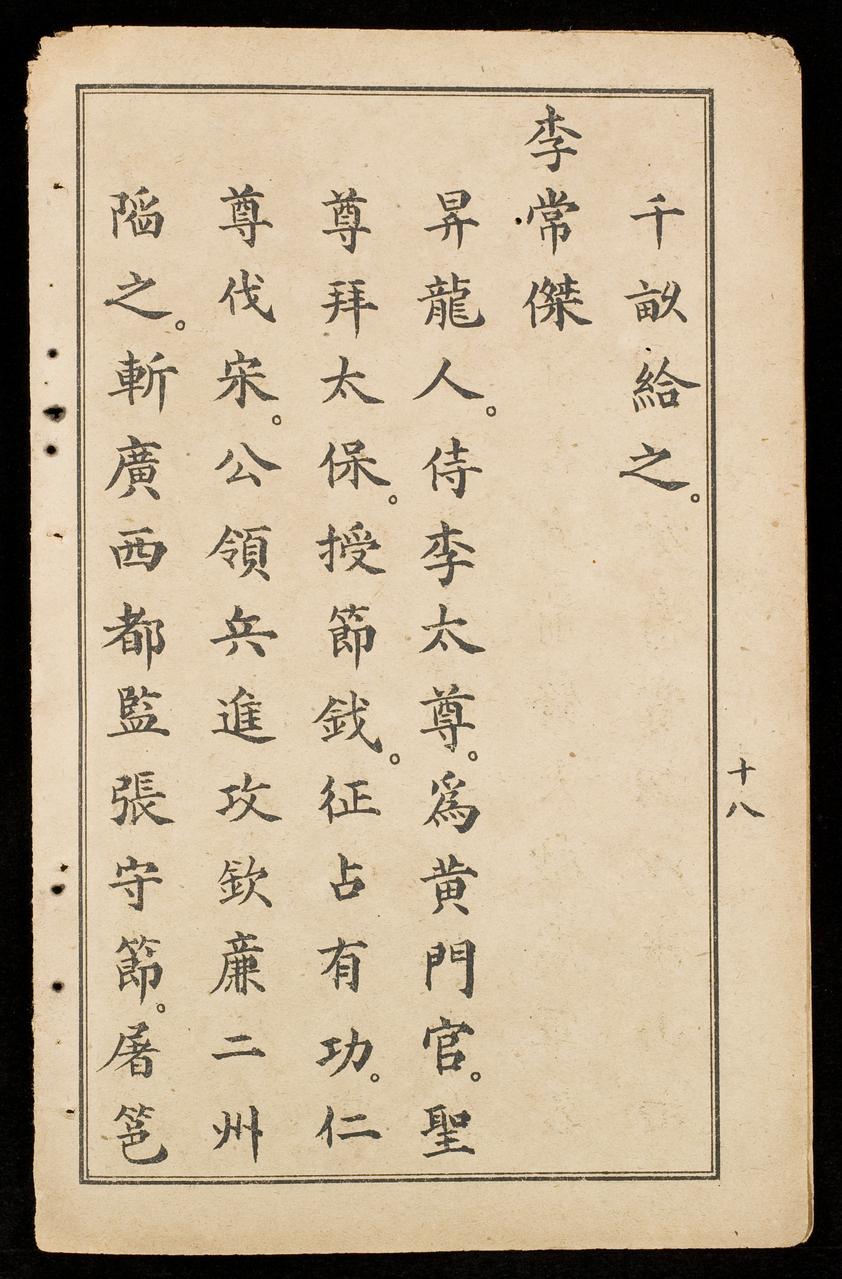 千畝給之。
李常傑
昇龍人。侍李太尊。爲黄門官。聖
尊拜太保。授節鉞。征占有功。仁
尊伐宋。公領兵進攻欽廉二州
陷之。斬廣西都監張守節。屠邕
十八